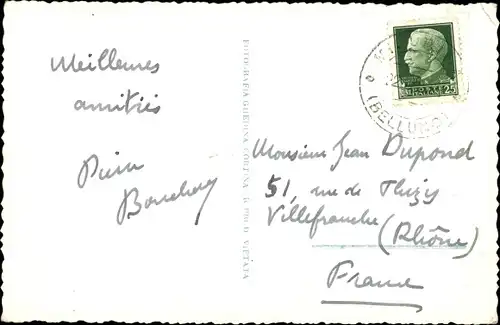 Meilleures
amitiés
Pierre
FOTOGRAFIA GHEDINA CORTINA
VIETATA
(BELLUNO)
25
Monsieur Jean Dupond
51, rue de Thizy
Villefranche
(Rhône)
France